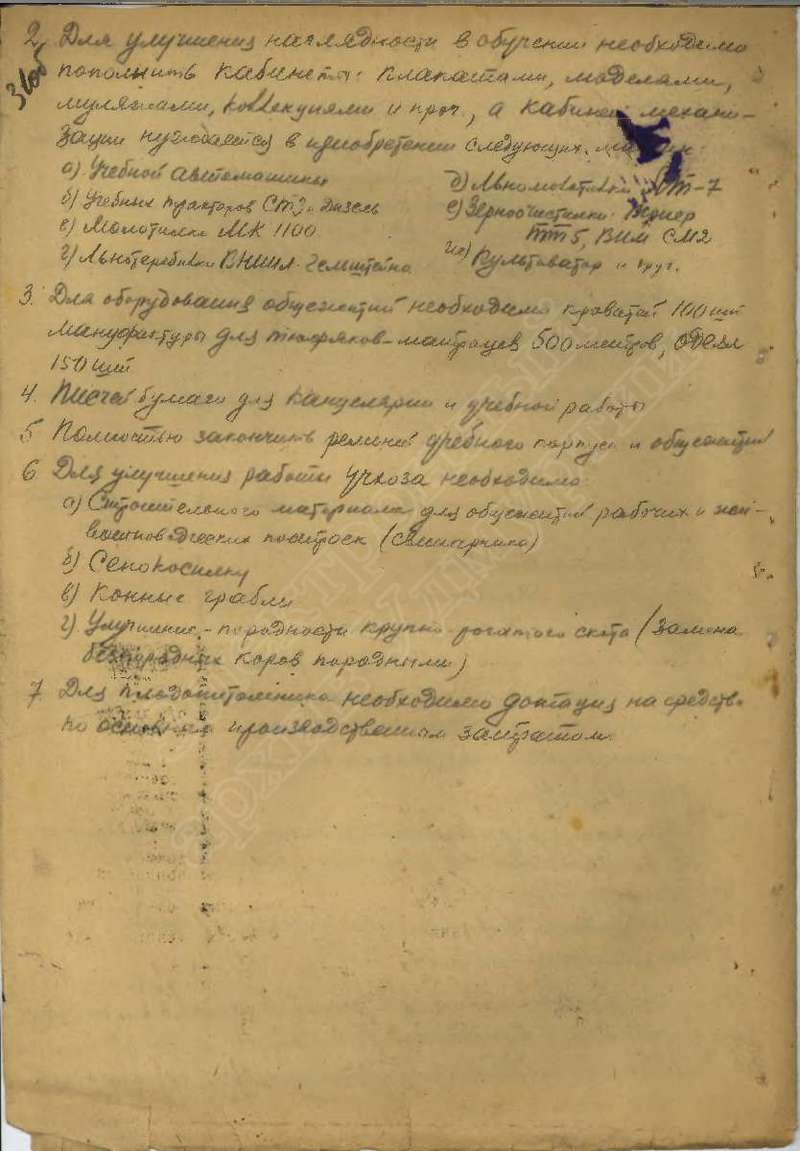 36об
2. Для улучшения наглядности в обучении необходимо
пополнить кабинеты: плакатами, моделами,
муляжами, коллекциями и проч, а кабинет механи-
зации нуждается в приобретении следующих машин:
а) Учебной автомашины
б) Учебных тракторов СТЗ и Дизель
в) Молотилка МК 1100
г) Льнотеребилки ВНИИЛ
д) Льномолотилки МЛТ-7
е) Зерноочистилки: Вейнер
ТТ 5, ВИМ СМ2
ж) Культиватор и друг.
3. Для оборудования общежитий необходимо кроватей 100 шт
Мануфактуры для тюфяков-матрацев 500 метров, одеял
150 шт
4. Писчей бумаги для канцелярии и учебной работы
5 Полностью закончить ремонт учебного корпуса и общежитий
6 Для улучшения работы учхоза необходимо:
а) Строительного материала для общежития рабочих и жи-
вотноводческих построек (свинарника)
б) Сенокосилку
в) Конные грабли
г) Улучшение породности крупно-рогатого скота (замена
беспородных коров породными)
7. Для плодопитомника необходимо дотация на средства
по основным производственным затратам.